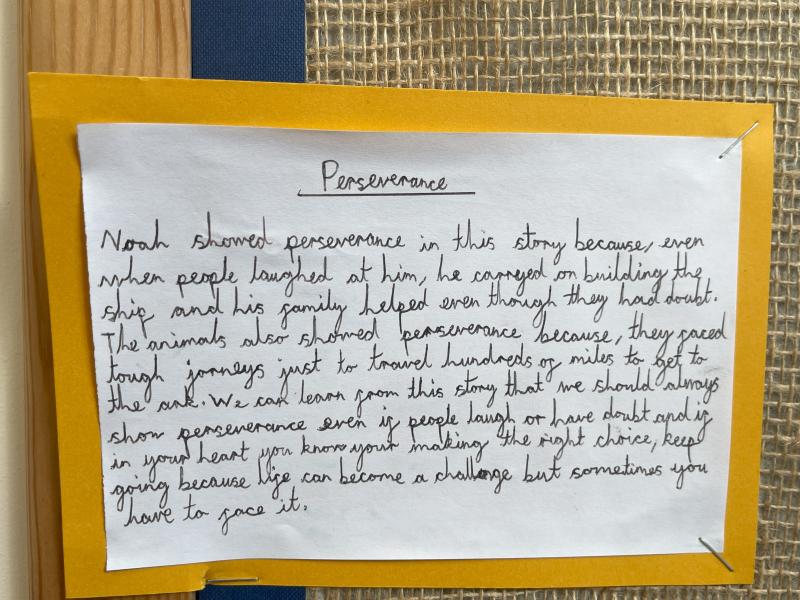 Perseverance
Noah showed perseverance in this story because, even
when people laughed at him, he carryed on building the
ship and his family helped even though they had doubt.
The animals also showed perseverance because, they faced
tough jorneys just to travel hundreds of miles to get to
the ark. We can learn from this story that we should always
show perseverance even if people laugh or have doubt and if
in your heart you know your making the right choice, keep
going because life can become a challenge but sometimes you
have to face it.